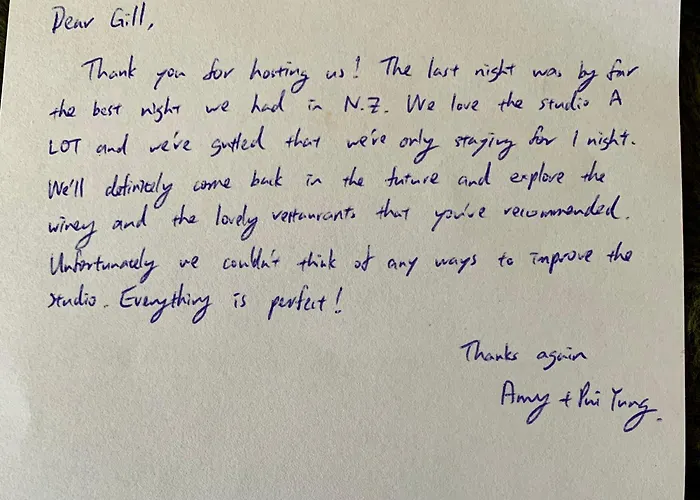 Dear Gill,
Thank you for hosting us! The last night was by far
the best night we had in N.Z. We love the studio A
LOT and we've gutted that we're only staying for 1 night.
We'll definitely come back in the future and explore the
winey and the lovely restaurants that you've recommended.
Unfortunately we couldn't think of any ways to improve the
studio. Everything is perfect!
Thanks again
Amy + Pui Yung.